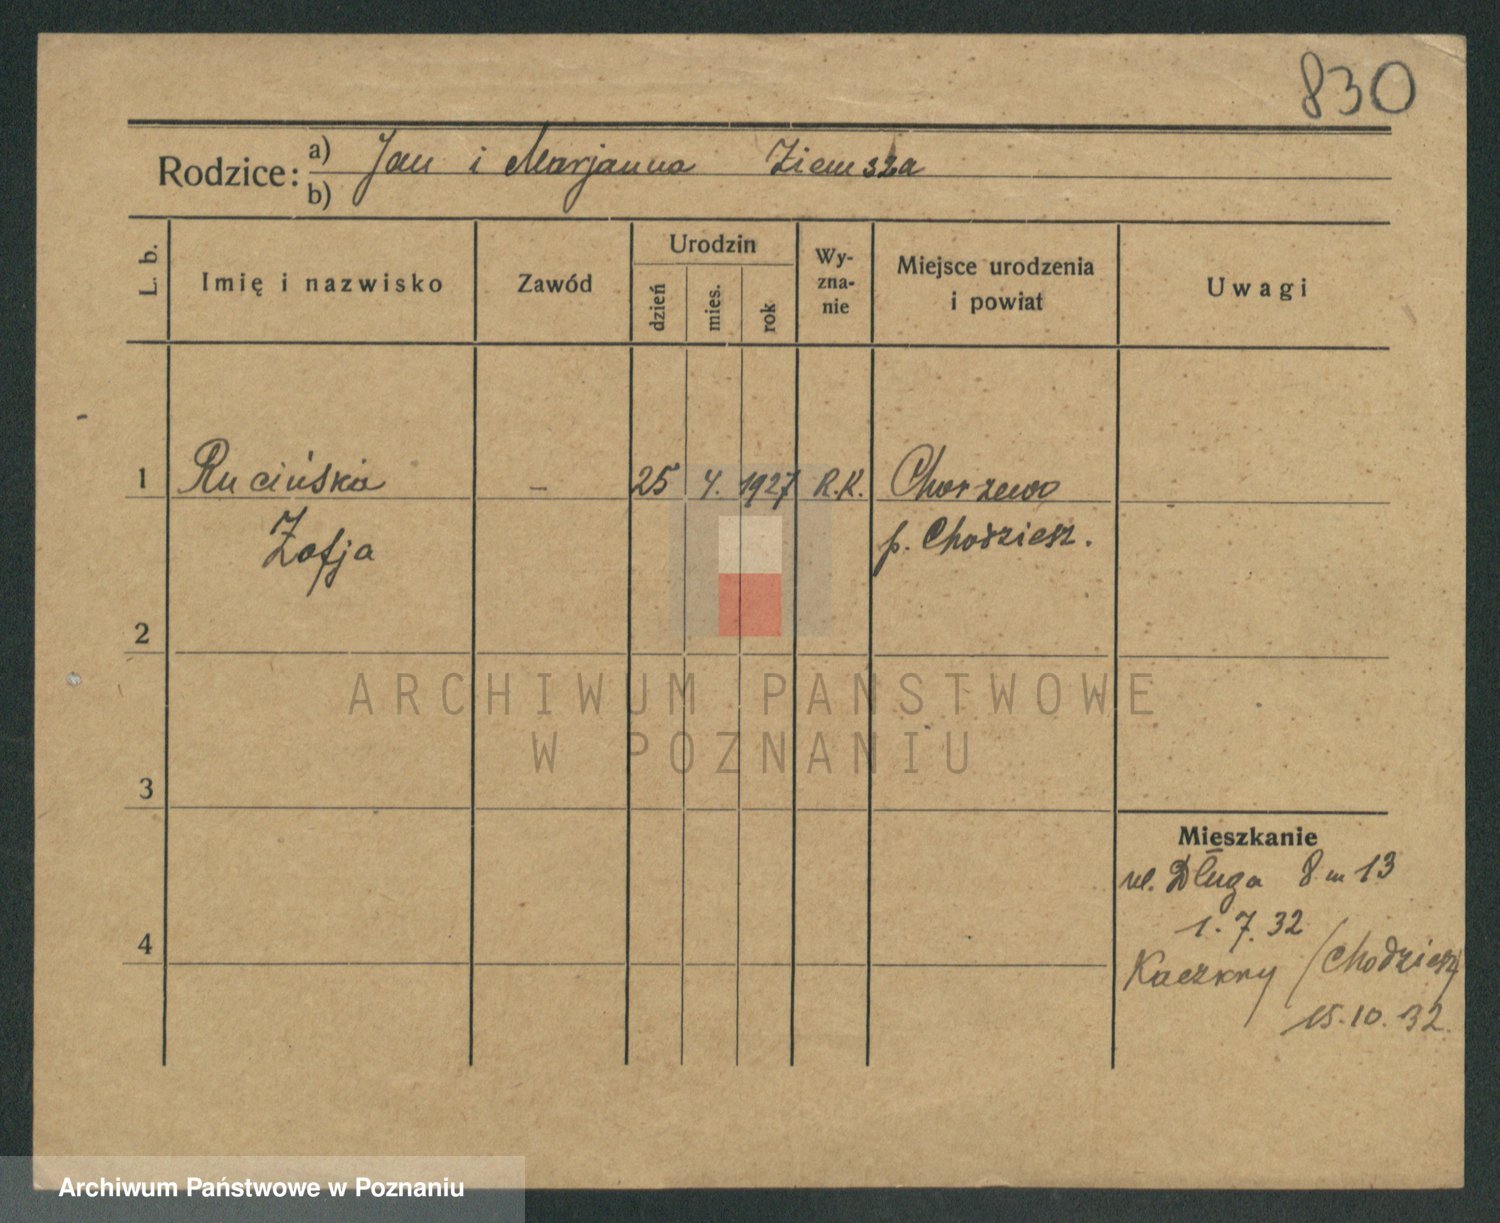 830
Rodzice: a) Jan i Marjanna Ziemsza
b)
L. b. Imię i nazwisko Zawód Urodzin dzień mies. rok Wyzna-nie Miejsce urodzenia i powiat Uwagi
1 Rucińska – 25 4. 1927 R.K. Chorzewo
Zofja p. Chodzież.
2
3
Mieszkanie
ul. Długa 8 m 13
1. 7. 32
4
Kaczkny / Chodzież
15. 10. 32.
ARCHIWUM PAŃSTWOWE
W POZNANIU
Archiwum Państwowe w Poznaniu